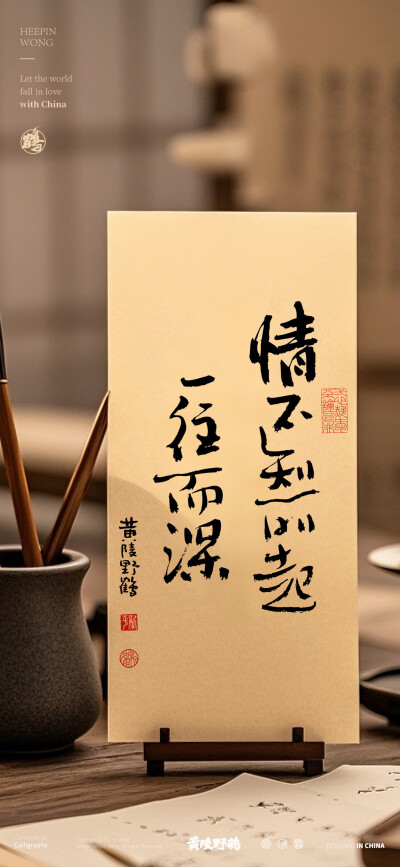 HEEPIN
WONG
Let the world
fall in love
with China
鹤
情不知所起
一往而深
黄陵野鹤
Calligraphy
黄陵野鹤
DESIGNED IN CHINA